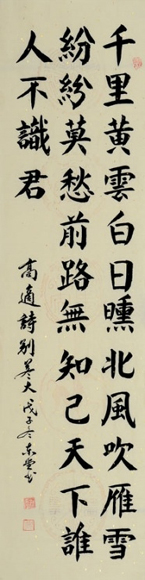 千里黃雲白日曛北風吹雁雪
紛紛莫愁前路無知己天下誰
人不識君
高適詩別董大戊子冬東堂书